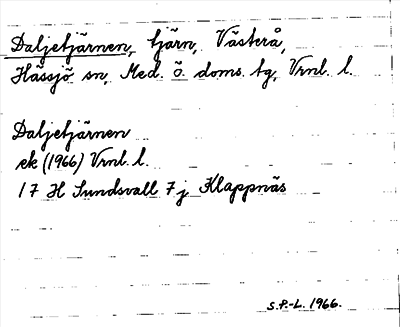 Daljetjärnen, tjärn, Västerå,
Hässjö sn, Med. ö. doms. tg, Vrnl. l.
Daljetjärnen
ek (1966) Vrnl. l.
17 H Sundsvall 7 j Klappnäs
S.P.-L. 1966.